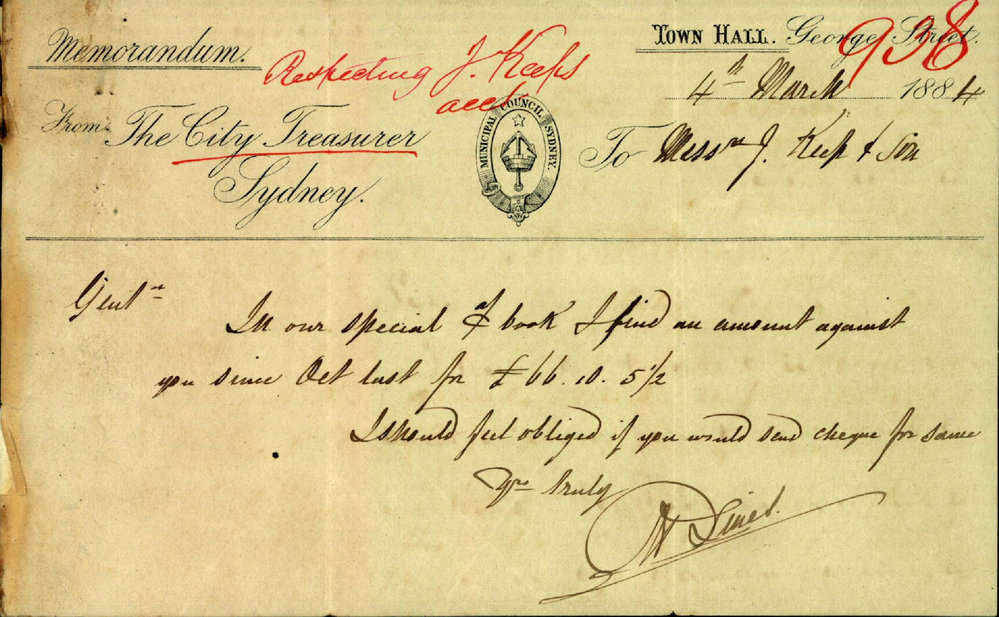 Memorandum.
Respecting J. Keeps
acct
938
TOWN HALL. George Street.
4th March 1884
From The City Treasurer
Sydney.
MUNICIPAL COUNCIL SYDNEY.
To Messrs J. Keep & Son
Gentn
In our special book I find an amount against
you since Oct last for £66. 10. 5½
I should feel obliged if you would send cheque for same
Yrs truly